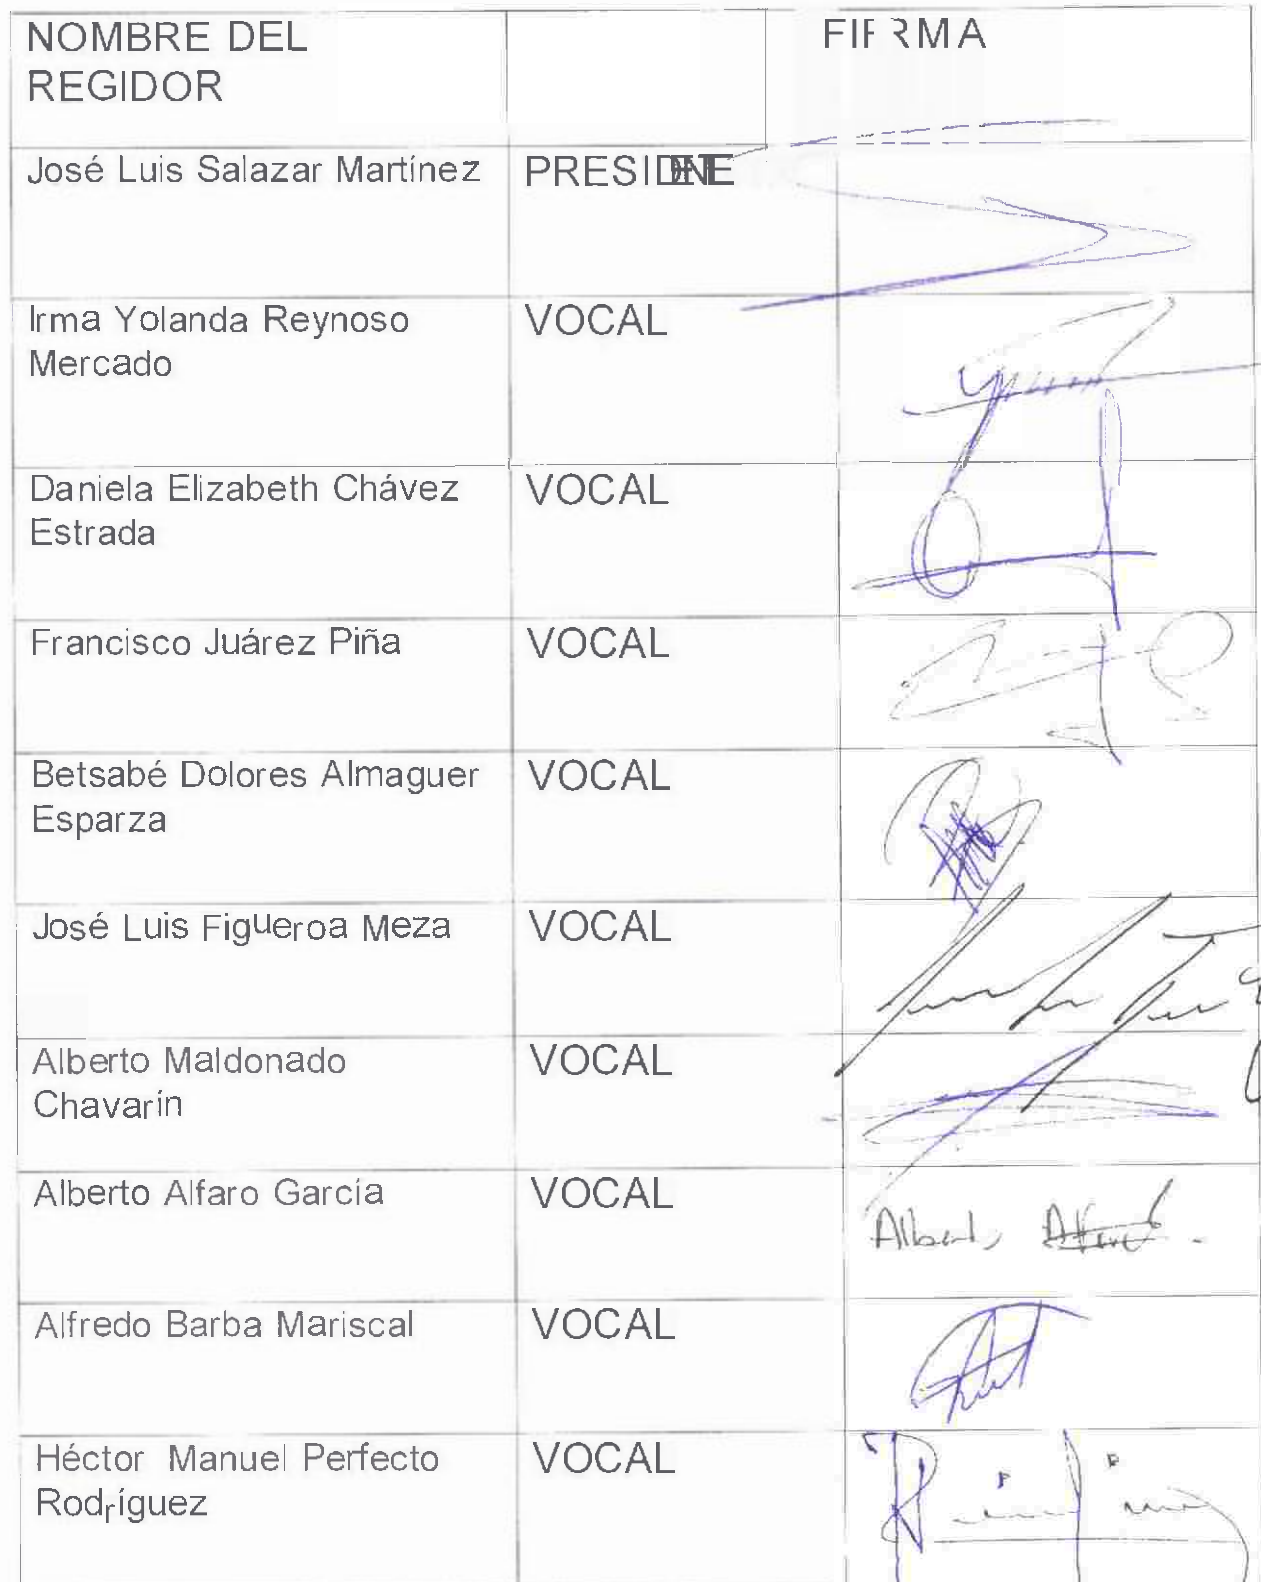 NOMBRE DEL
REGIDOR
FIRMA
José Luis Salazar Martínez
PRESIDENTE
Irma Yolanda Reynoso
Mercado
VOCAL
Daniela Elizabeth Chávez
Estrada
VOCAL
Francisco Juárez Piña
VOCAL
Betsabé Dolores Almaguer
Esparza
VOCAL
José Luis Figueroa Meza
VOCAL
Alberto Maldonado
Chavarin
VOCAL
Alberto Alfaro García
VOCAL
Alfredo Barba Mariscal
VOCAL
Héctor Manuel Perfecto
Rodríguez
VOCAL